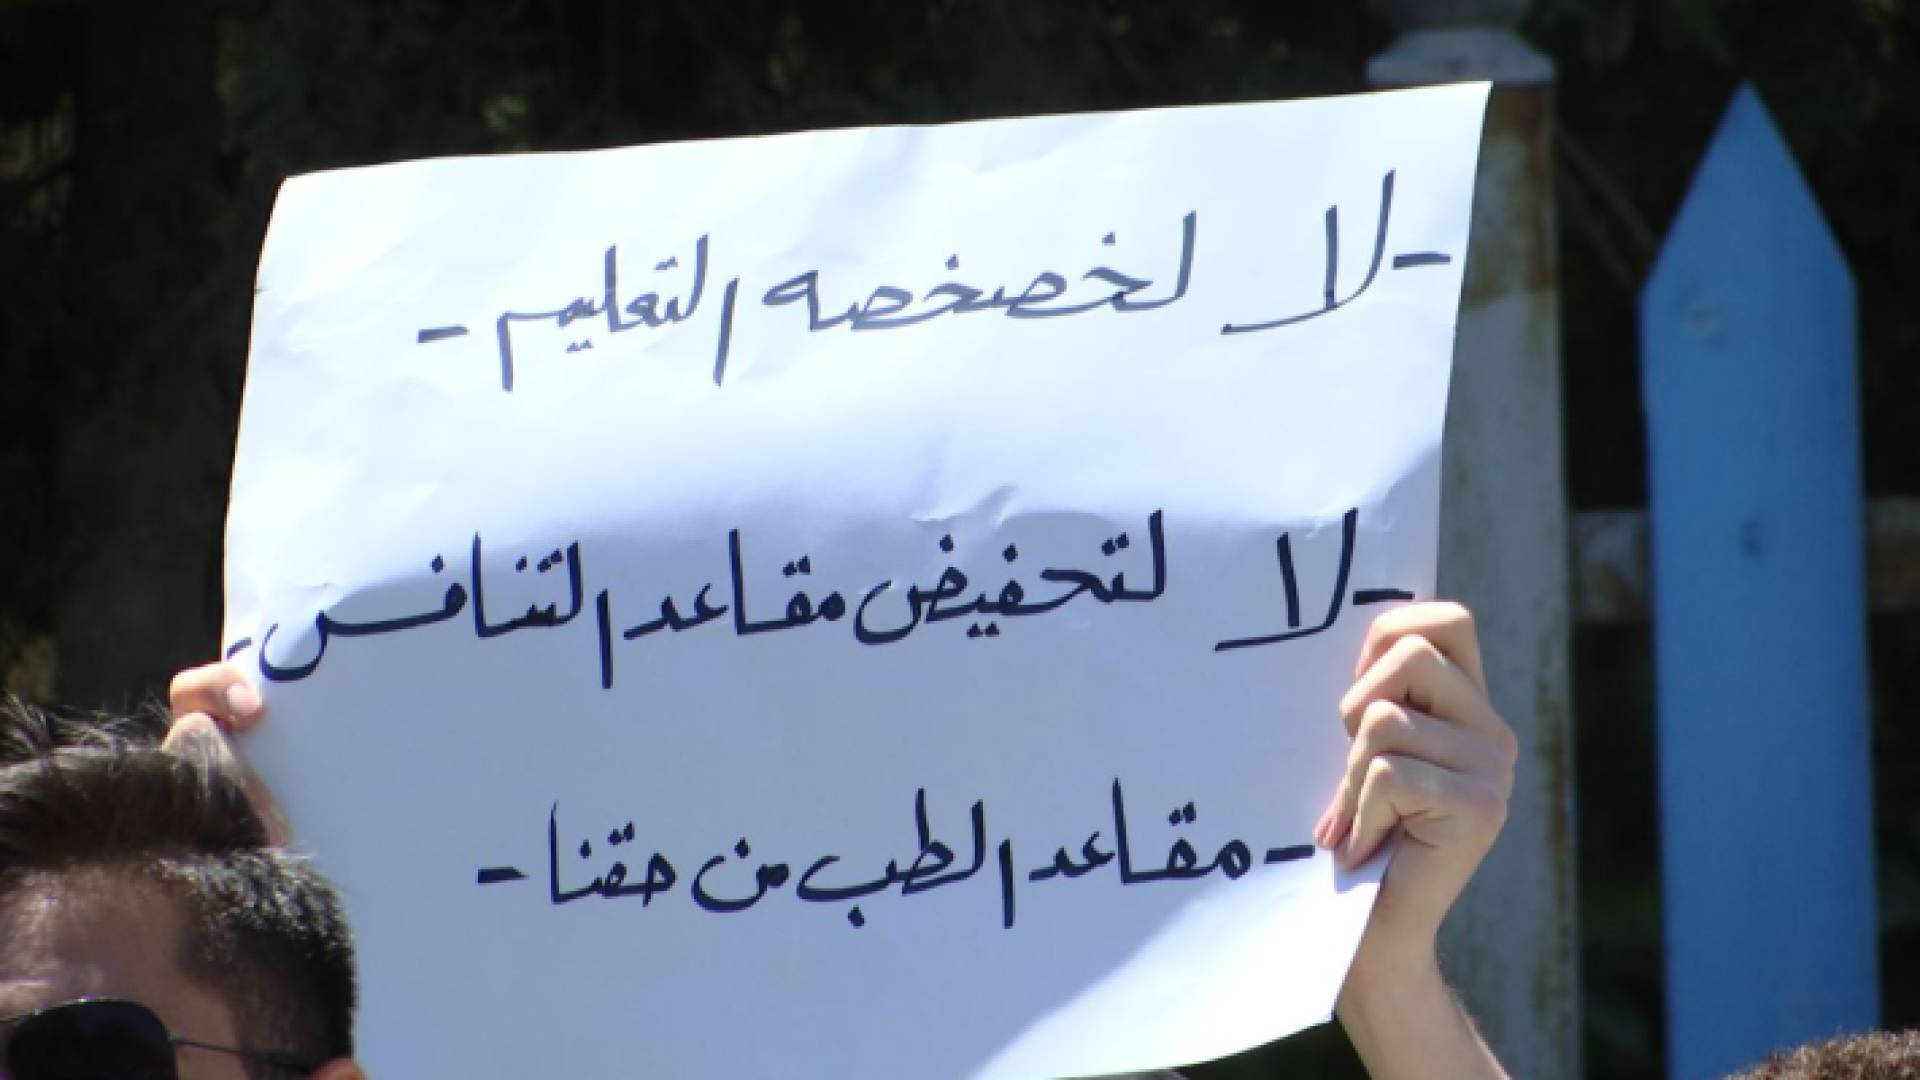 - لا لخصخصه التعليم -
- لا لتحفيض مقاعد التنافس -
- مقاعد الطب من حقنا -